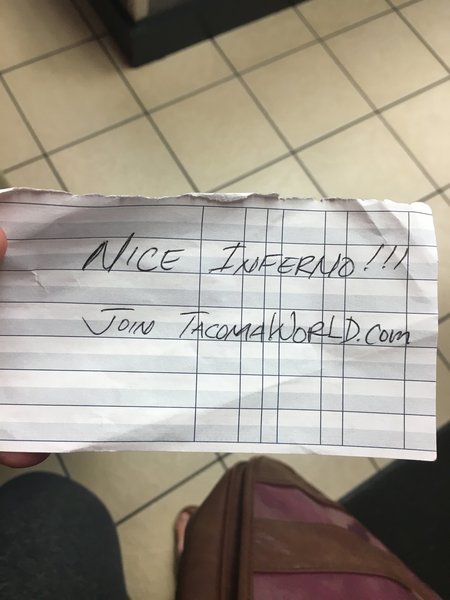 NICE INFERNO!!!
JOIN TACOMAWORLD.COM